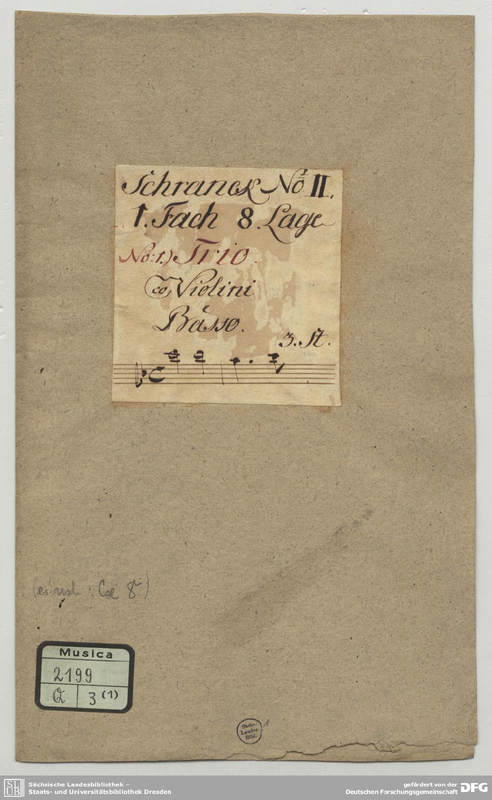 Schranck No II.
1. Fach 8. Lage
No: 1.) Trio.
co Violini
Basso.
3. St.
Musica
2199
Q 3 (1)
Sächs.
Landes-
Bibl.
1
Sächsische Landesbibliothek –
Staats- und Universitätsbibliothek Dresden
gefördert von der
Deutschen Forschungsgemeinschaft DFG